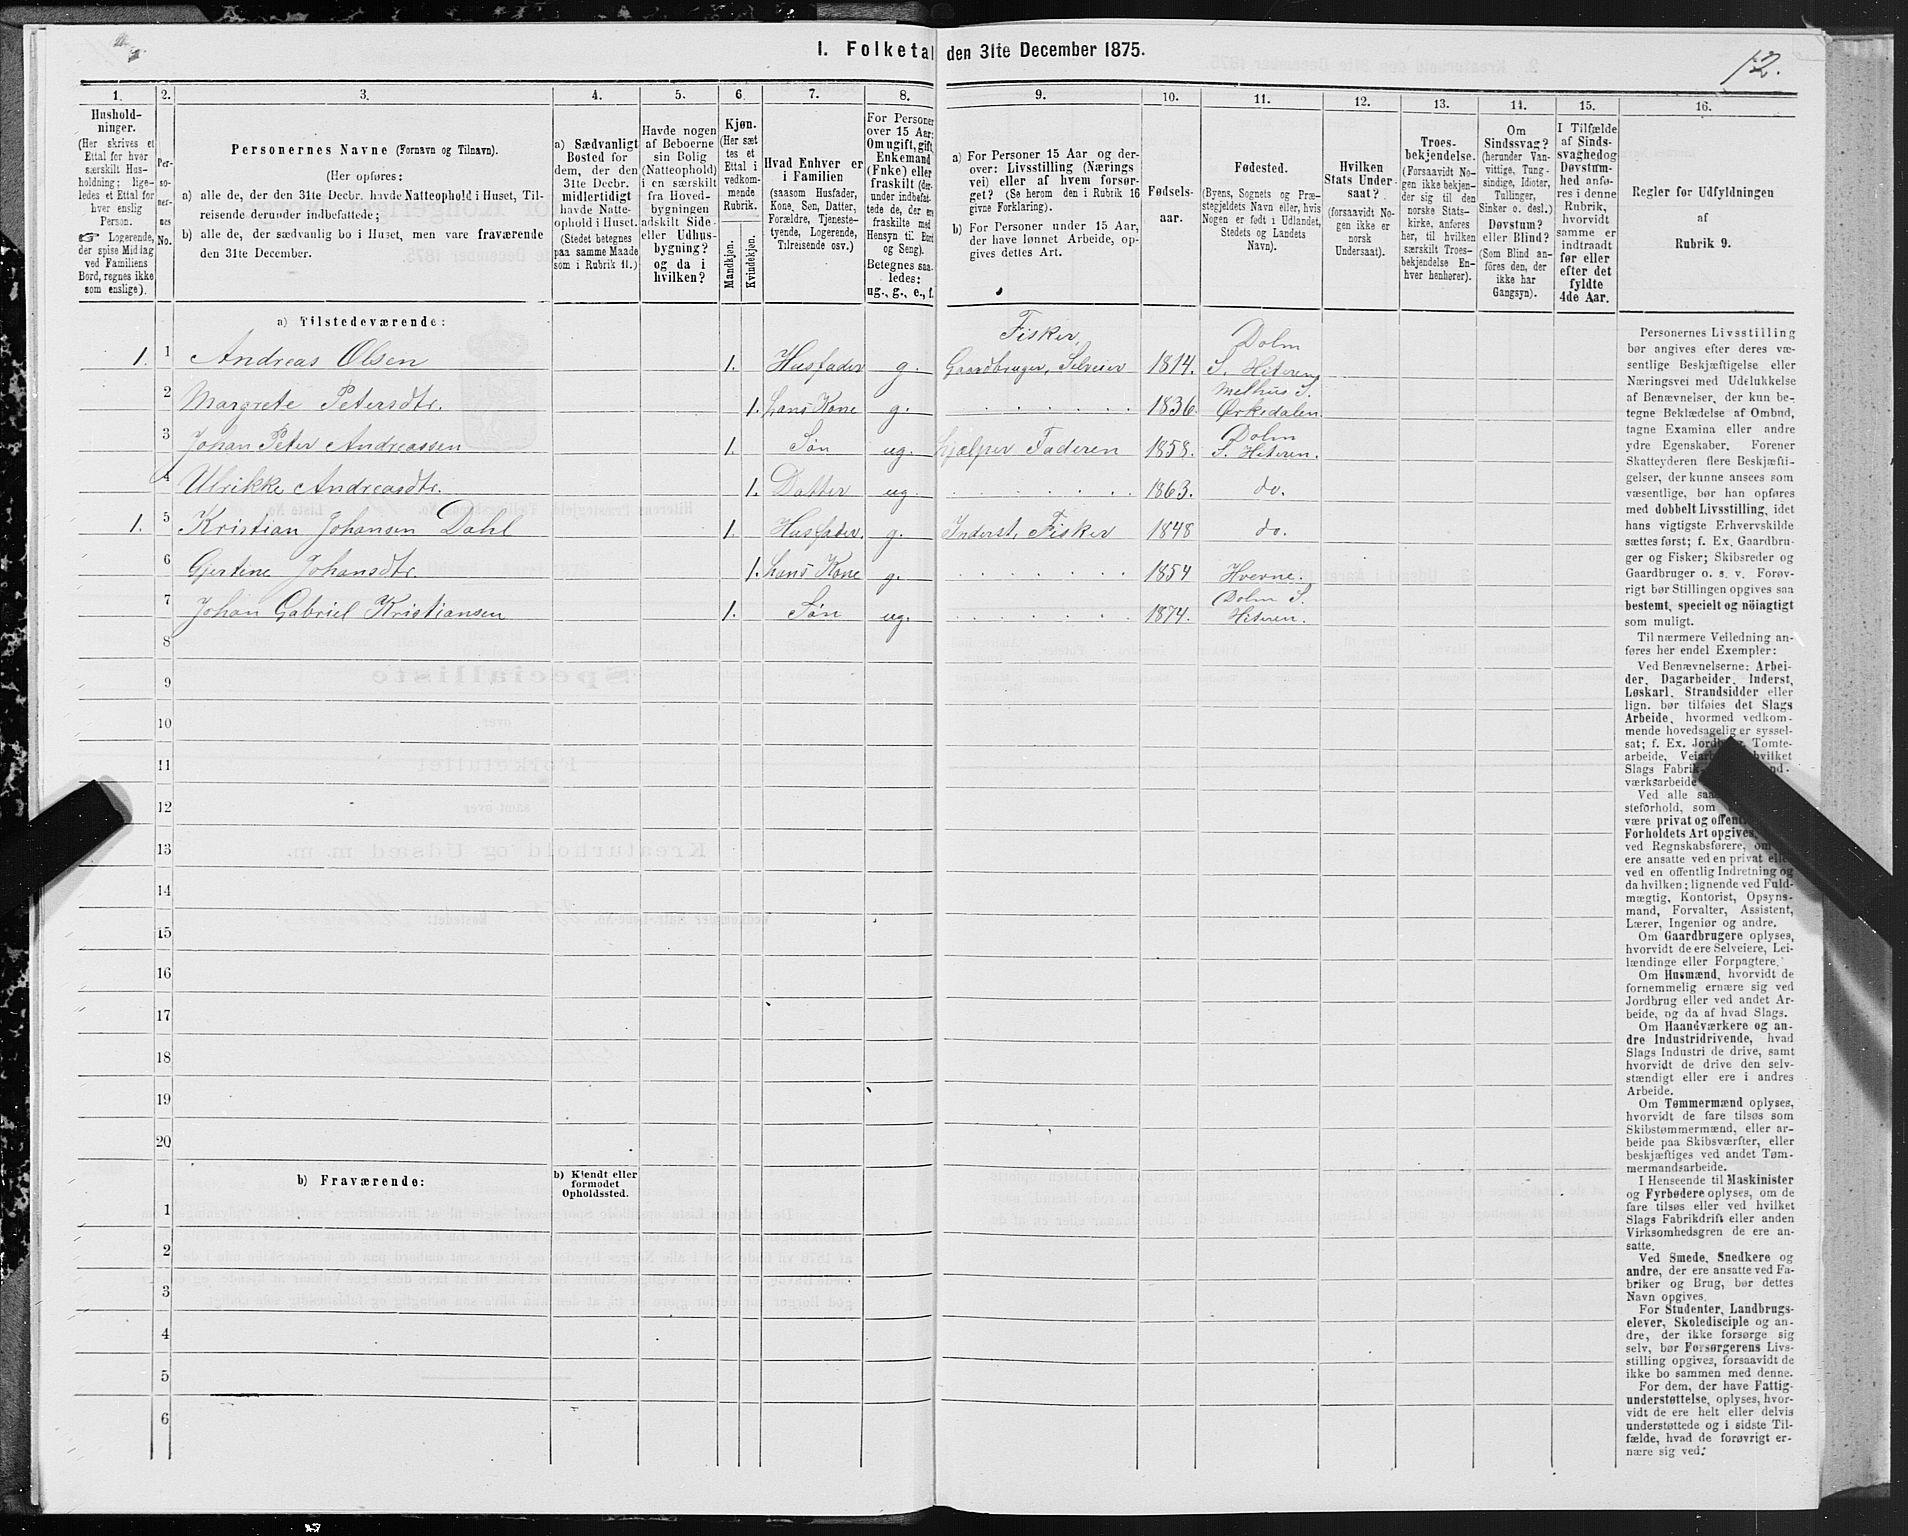 I. Folketal den 31te December 1875.
12.
1.
Hushold-
ninger.
(Her skrives et
Ettal for hver
særskilt Hus-
holdning; lige-
ledes et Ettal for
hver enslig
Person.
Logerende,
der spise Midlag
ved Familiens
Bord, regnes ikke
som enslige).
2.
Per-
so-
ner-
nes
No.
3.
Personernes Navne (Fornavn og Tilnavn).
(Her opføres:
a) alle de, der den 31te Decbr. havde Natteophold i Huset, Til-
reisende derunder indbefattede;
b) alle de, der sædvanlig bo i Huset, men vare fraværende
den 31te December.
4.
a) Sædvanligt
Bosted for
dem, der den
31te Decbr.
midlertidigt
havde Natte-
ophold i Huset.
(Stedet betegnes
paa samme Maade
som i Rubrik 11.)
5.
Havde nogen
af Beboerne
sin Bolig
(Natteophold)
i en særskilt
fra Hoved-
bygningen
adskilt Side-
eller Udhus-
bygning?
og da i
hvilken?
6.
Kjøn.
(Her sæt-
tes et
Ettal i
vedkom-
mende
Rubrik.
Mandkjøn.
Kvindekjøn.
7.
Hvad Enhver er
i Familien
(saasom Husfader,
Kone, Søn, Datter,
Forældre, Tjeneste-
tyende, Logerende,
Tilreisende osv.)
8.
For Personer
over 15 Aar:
Om ugift, gift,
Enkemand
(Enke) eller
fraskilt (der-
under indbefat-
tede de, der ere
fraskilte med
Hensyn til Bord
og Seng).
Betegnes saa-
ledes:
ug., g., e., f.
9.
a) For Personer 15 Aar og der-
over: Livsstilling (Nærings
vei) eller af hvem forsør-
get? (Se herom den i Rubrik 16
givne Forklaring).
b) For Personer under 15 Aar,
der have lønnet Arbeide, op-
gives dettes Art.
10.
Fødsels-
aar.
11.
Fødested.
(Byens, Sognets og Præ-
stegjeldets Navn eller, hvis
Nogen er født i Udlandet,
Stedets og Landets
Navn).
12.
Hvilken
Stats Under-
saat?
(forsaavidt No-
gen ikke er
norsk
Undersaat).
13.
Troes-
bekjendelse.
(Forsaavidt No-
gen ikke bekjen-
der sig til den
norske Stats-
kirke, anføres
her, til hvilken
særskilt Troes-
bekjendelse En-
hver henhører).
14.
Om
Sindssvag?
(herunder Van-
vittige, Tung-
sindige, Idioter,
Tullinger,
Sinker o. desl.)
Døvstum?
eller Blind?
(Som Blind an-
føres den, der
ikke har
Gangsyn).
15.
I Tilfælde
af Sinds-
svaghed og
Døvstum-
hed anfø-
res i denne
Rubrik,
hvorvidt
samme er
indtraadt
før eller
efter det
fyldte
4de Aar.
16.
Regler for Udfyldningen
af
Rubrik 9.
a) Tilstedeværende:
1. 1 Andreas Olsen 1. Husfader g. Fisker, Gaardbruger, Selveier 1814. Dolm S. Hiteren
2 Margrete Petersdtr. 1. hans Kone g. 1836. Melhus S. Ørksdalen
3 Johan Peter Andreassen 1. Søn ug. hjælper Faderen 1858. Dolm S. Hiteren.
4 Ulrikke Andreasdtr. 1. Datter ug. 1863. do.
1. 5 Kristian Johansen Dahl 1. Husfader. g. Inderst, Fisker 1848 do.
6 Gjertine Johansdtr. 1. hans Kone g. 1854 Hevne.
7 Johan Gabriel Kristiansen 1. Søn ug. 1874. Dolm S. Hiteren.
8
9
10
11
12
13
14
15
16
17
18
19
20
b) Fraværende:
b) Kjendt eller
formodet
Opholdssted.
1
2
3
4
5
6
Personernes Livsstilling
bør angives efter deres væ-
sentlige Beskjæftigelse eller
Næringsvei med Udelukkelse
af Benævnelser, der kun be-
tegne Beklædelse af Ombud,
tagne Examina eller andre
ydre Egenskaber. Forener
Skatteyderen flere Beskjæfti-
gelser, der kunne ansees som
væsentlige, bør han opføres
med dobbelt Livsstilling, idet
hans vigtigste Erhvervskilde
sættes først; f. Ex. Gaardbru-
ger og Fisker; Skibsreder og
Gaardbruger o. s. v. Forøv-
rigt bør Stillingen opgives saa
bestemt, specielt og nöiagtigt
som muligt.
Til nærmere Veiledning an-
føres her endel Exempler:
Ved Benævnelserne: Arbei-
der, Dagarbeider, Inderst,
Løskarl, Strandsidder eller
lign. bør tilføies det Slags
Arbeide, hvormed vedkom-
mende hovedsagelig er syssel-
sat; f. Ex. Tomte-
arbeide, hvilket
Slags
værksarbeide
Ved alle
steforhold, som
være privat og
Forholdets Art opgives,
ved Regnskabsførere, om
ere ansatte ved en privat eller
ved en offentlig Indretning og
da hvilken; lignende ved Fuld-
mægtig, Kontorist, Opsyns-
mand, Forvalter, Assistent,
Lærer, Ingeniør og andre.
Om Gaardbrugere oplyses,
hvorvidt de ere Selveiere, Lei-
lændinge eller Forpagtere.
Om Husmænd, hvorvidt de
fornemmelig ernære sig ved
Jordbrug eller ved andet Ar-
beide, og da af hvad Slags.
Om Haandværkere og an-
dre Industridrivende, hvad
Slags Industri de drive, samt
hvorvidt de drive den selv-
stændigt eller ere i andres
Arbeide.
Om Tømmermænd oplyses,
hvorvidt de fare tilsøs som
Skibstømmermænd, eller ar-
beide paa Skibsværfter, eller
beskjæftiges ved andet Tøm-
mermandsarbeide.
I Henseende til Maskinister
og Fyrbødere oplyses, om de
fare tilsøs eller ved hvilket
Slags Fabrikdrift eller anden
Virksomhedsgren de ere an-
satte.
Ved Smede, Snedkere og
andre, der ere ansatte ved Fa-
briker og Brug, bør dettes
Navn opgives.
For Studenter, Landbrugs-
elever, Skoledisciple og an-
dre, der ikke forsørge sig
selv, bør Forsørgerens Livs-
stilling opgives, forsaavidt de
ikke bo sammen med denne.
For dem, der have Fattig-
understøttelse, oplyses, hvor-
vidt de ere helt eller delvis
understøttede og i sidste Til-
fælde, hvad de forøvrigt er-
nære sig ved.